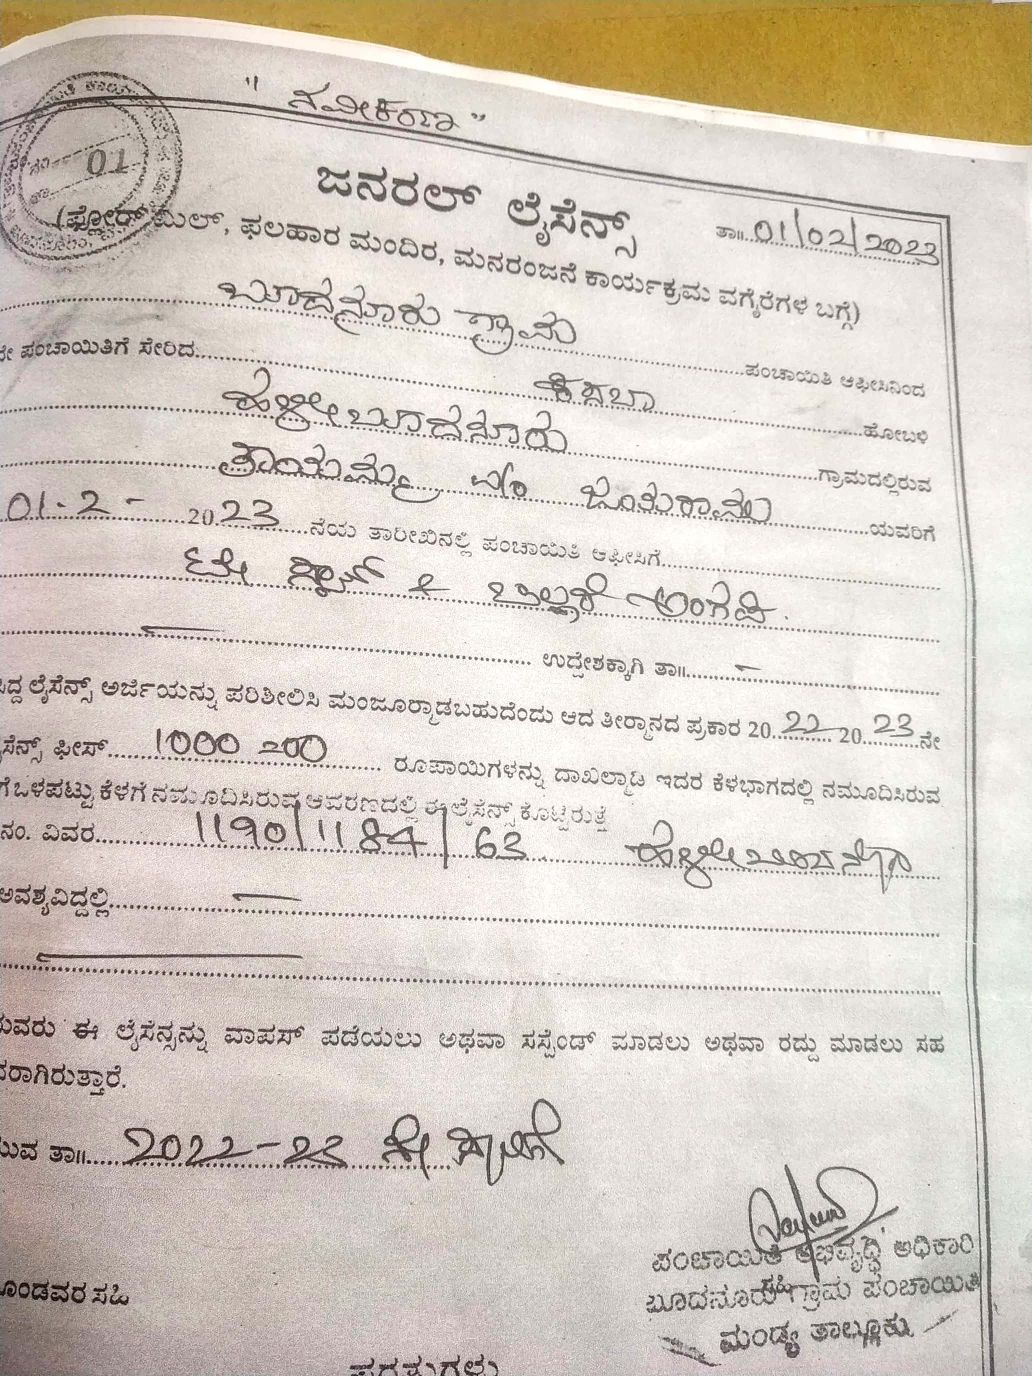 " ನವೀಕರಣ "
01
ಜನರಲ್ ಲೈಸೆನ್ಸ್
ತಾ॥ 01/02/2023
(ಫ್ಲೋರ್ ಮಿಲ್, ಫಲಹಾರ ಮಂದಿರ, ಮನರಂಜನೆ ಕಾರ್ಯಕ್ರಮ ವಗೈರೆಗಳ ಬಗ್ಗೆ)
ಬೂದನೂರು ಗ್ರಾಮ ಪಂಚಾಯಿತಿ ಆಫೀಸಿನಿಂದ
ನೇ ಪಂಚಾಯಿತಿಗೆ ಸೇರಿದ ಕಸಬಾ ಹೋಬಳಿ
ಹಳೇಬೂದನೂರು ಗ್ರಾಮದಲ್ಲಿರುವ
ತಾಯಮ್ಮ ಜಯರಾಮು ಯವರಿಗೆ
01-2- 2023 ನೆಯ ತಾರೀಖಿನಲ್ಲಿ ಪಂಚಾಯಿತಿ ಆಫೀಸಿಗೆ
ಟೀ ಸ್ಟಾಲ್ & ಚಿಲ್ಲರೆ ಅಂಗಡಿ.
ಉದ್ದೇಶಕ್ಕಾಗಿ ತಾ॥ -
ಸಿದ್ದ ಲೈಸೆನ್ಸ್ ಅರ್ಜಿಯನ್ನು ಪರಿಶೀಲಿಸಿ ಮಂಜೂರ್ಮಾಡಬಹುದೆಂದು ಆದ ತೀರ್ಮಾನದ ಪ್ರಕಾರ 2022 2023 ನೇ
ಸೆನ್ಸ್ ಫೀಸ್ 1000=00 ರೂಪಾಯಿಗಳನ್ನು ದಾಖಲ್ಮಾಡಿ ಇದರ ಕೆಳಭಾಗದಲ್ಲಿ ನಮೂದಿಸಿರುವ
ಗೆ ಒಳಪಟ್ಟು ಕೆಳಗೆ ನಮೂದಿಸಿರುವ ಆವರಣದಲ್ಲಿ ಈ ಲೈಸೆನ್ಸ್ ಕೊಟ್ಟಿರುತ್ತೆ
ನಂ. ವಿವರ 1190/1184/63 ಹಳೇಬೂದನೂರು
ಅವಶ್ಯವಿದ್ದಲ್ಲಿ
ರುವರು ಈ ಲೈಸೆನ್ಸನ್ನು ವಾಪಸ್ ಪಡೆಯಲು ಅಥವಾ ಸಸ್ಪೆಂಡ್ ಮಾಡಲು ಅಥವಾ ರದ್ದು ಮಾಡಲು ಸಹ
ದರಾಗಿರುತ್ತಾರೆ.
ರುವ ತಾ॥ 2022-23 ನೇ ಸಾಲಿಗೆ
ಪಂಚಾಯಿತಿ ಅಭಿವೃದ್ಧಿ ಅಧಿಕಾರಿ
ಸಹಿ
ಬೂದನೂರು ಗ್ರಾಮ ಪಂಚಾಯಿತಿ
ಗೊಂಡವರ ಸಹಿ
ಮಂಡ್ಯ ತಾಲ್ಲೂಕು
ಷರತ್ತುಗಳು